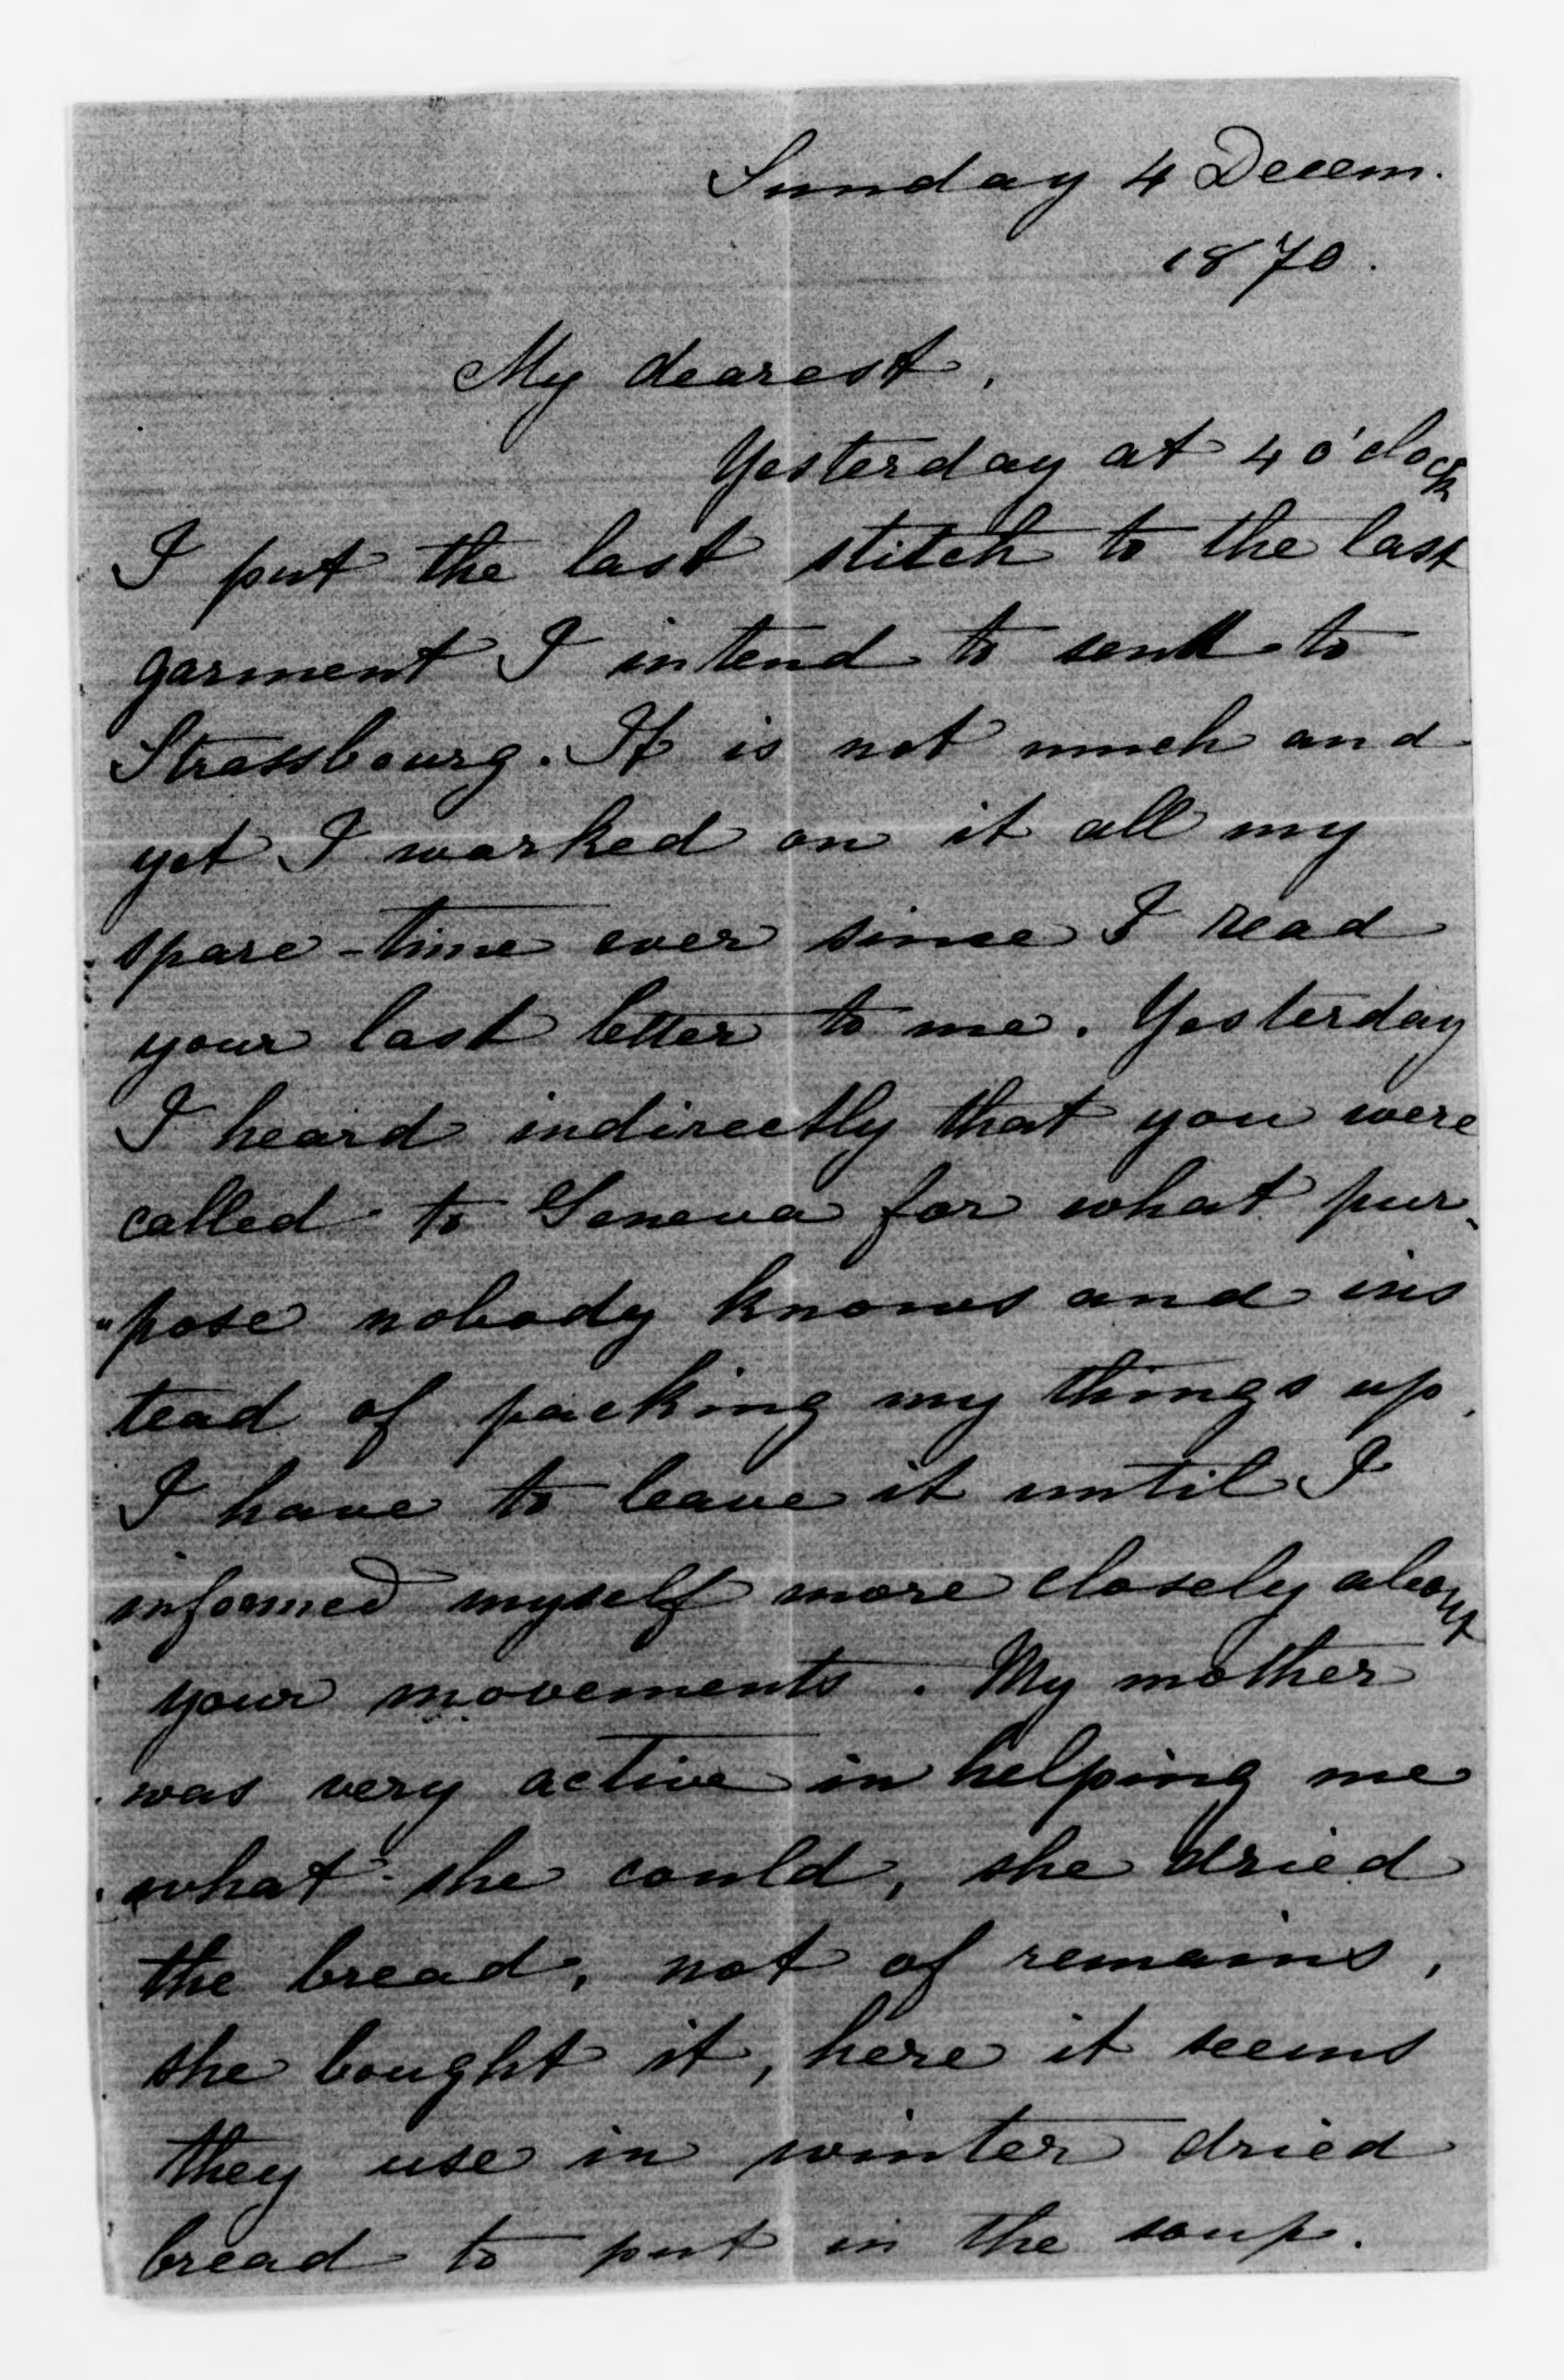 Sunday 4 Decem.
1870.
My dearest,
Yesterday at 4 o'clock
I put the last stitch to the last
garment I intend to send to
Strassbourg. It is not much and
yet I worked on it all my
spare-time ever since I read
your last letter to me. Yesterday
I heard indirectly that you were
called to Geneva for what pur-
"pose nobody knows and ins
tead of packing my things up,
I have to leave it until I
informed myself more closely about
your movements. My mother
was very active in helping me
what she could, she dried
the bread, not of remains,
she bought it, here it seems
they use in winter dried
bread to put in the soup.